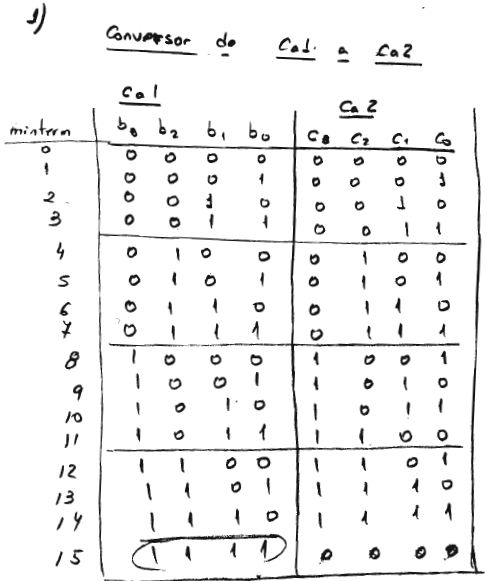 1)
Conversor de Ca1 a Ca2
Ca1 Ca2
minterm b3 b2 b1 b0 C3 C2 C1 C0
0 0 0 0 0 0 0 0 0
1 0 0 0 1 0 0 0 1
2 0 0 1 0 0 0 1 0
3 0 0 1 1 0 0 1 1
4 0 1 0 0 0 1 0 0
5 0 1 0 1 0 1 0 1
6 0 1 1 0 0 1 1 0
7 0 1 1 1 0 1 1 1
8 1 0 0 0 1 0 0 1
9 1 0 0 1 1 0 1 0
10 1 0 1 0 1 0 1 1
11 1 0 1 1 1 1 0 0
12 1 1 0 0 1 1 0 1
13 1 1 0 1 1 1 1 0
14 1 1 1 0 1 1 1 1
15 1 1 1 1 0 0 0 0